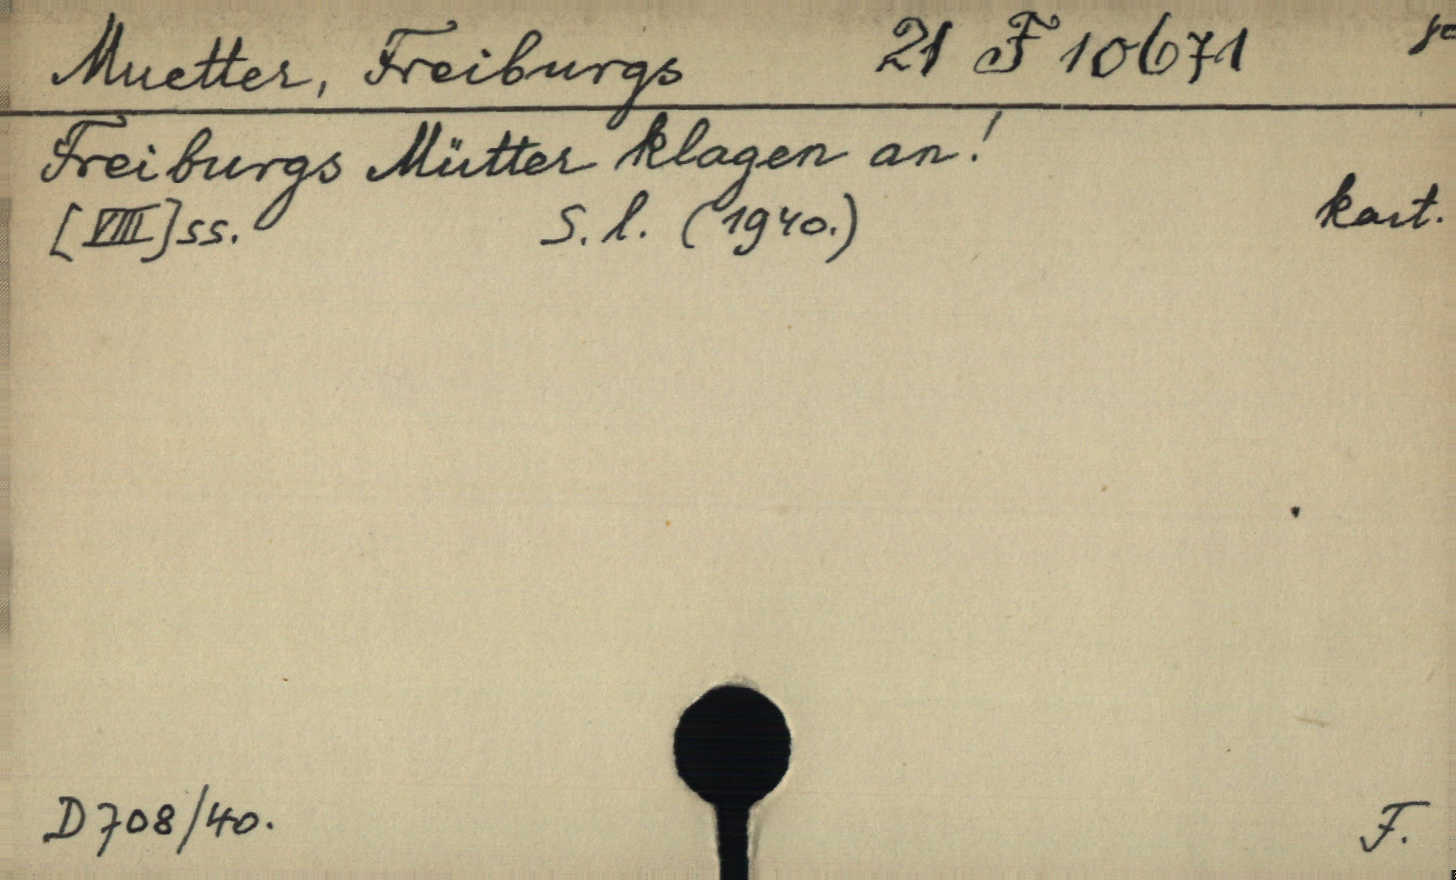 Muetter, Freiburgs 21 F 10671
Freiburgs Mütter klagen an!
[VIII]ss. S. l. (1940.) kart.
D708/40. F.